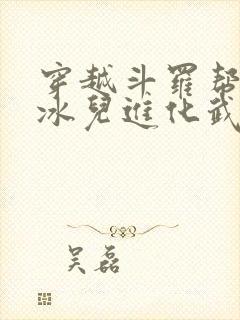 穿越斗羅幫
冰兒進化武
吴磊